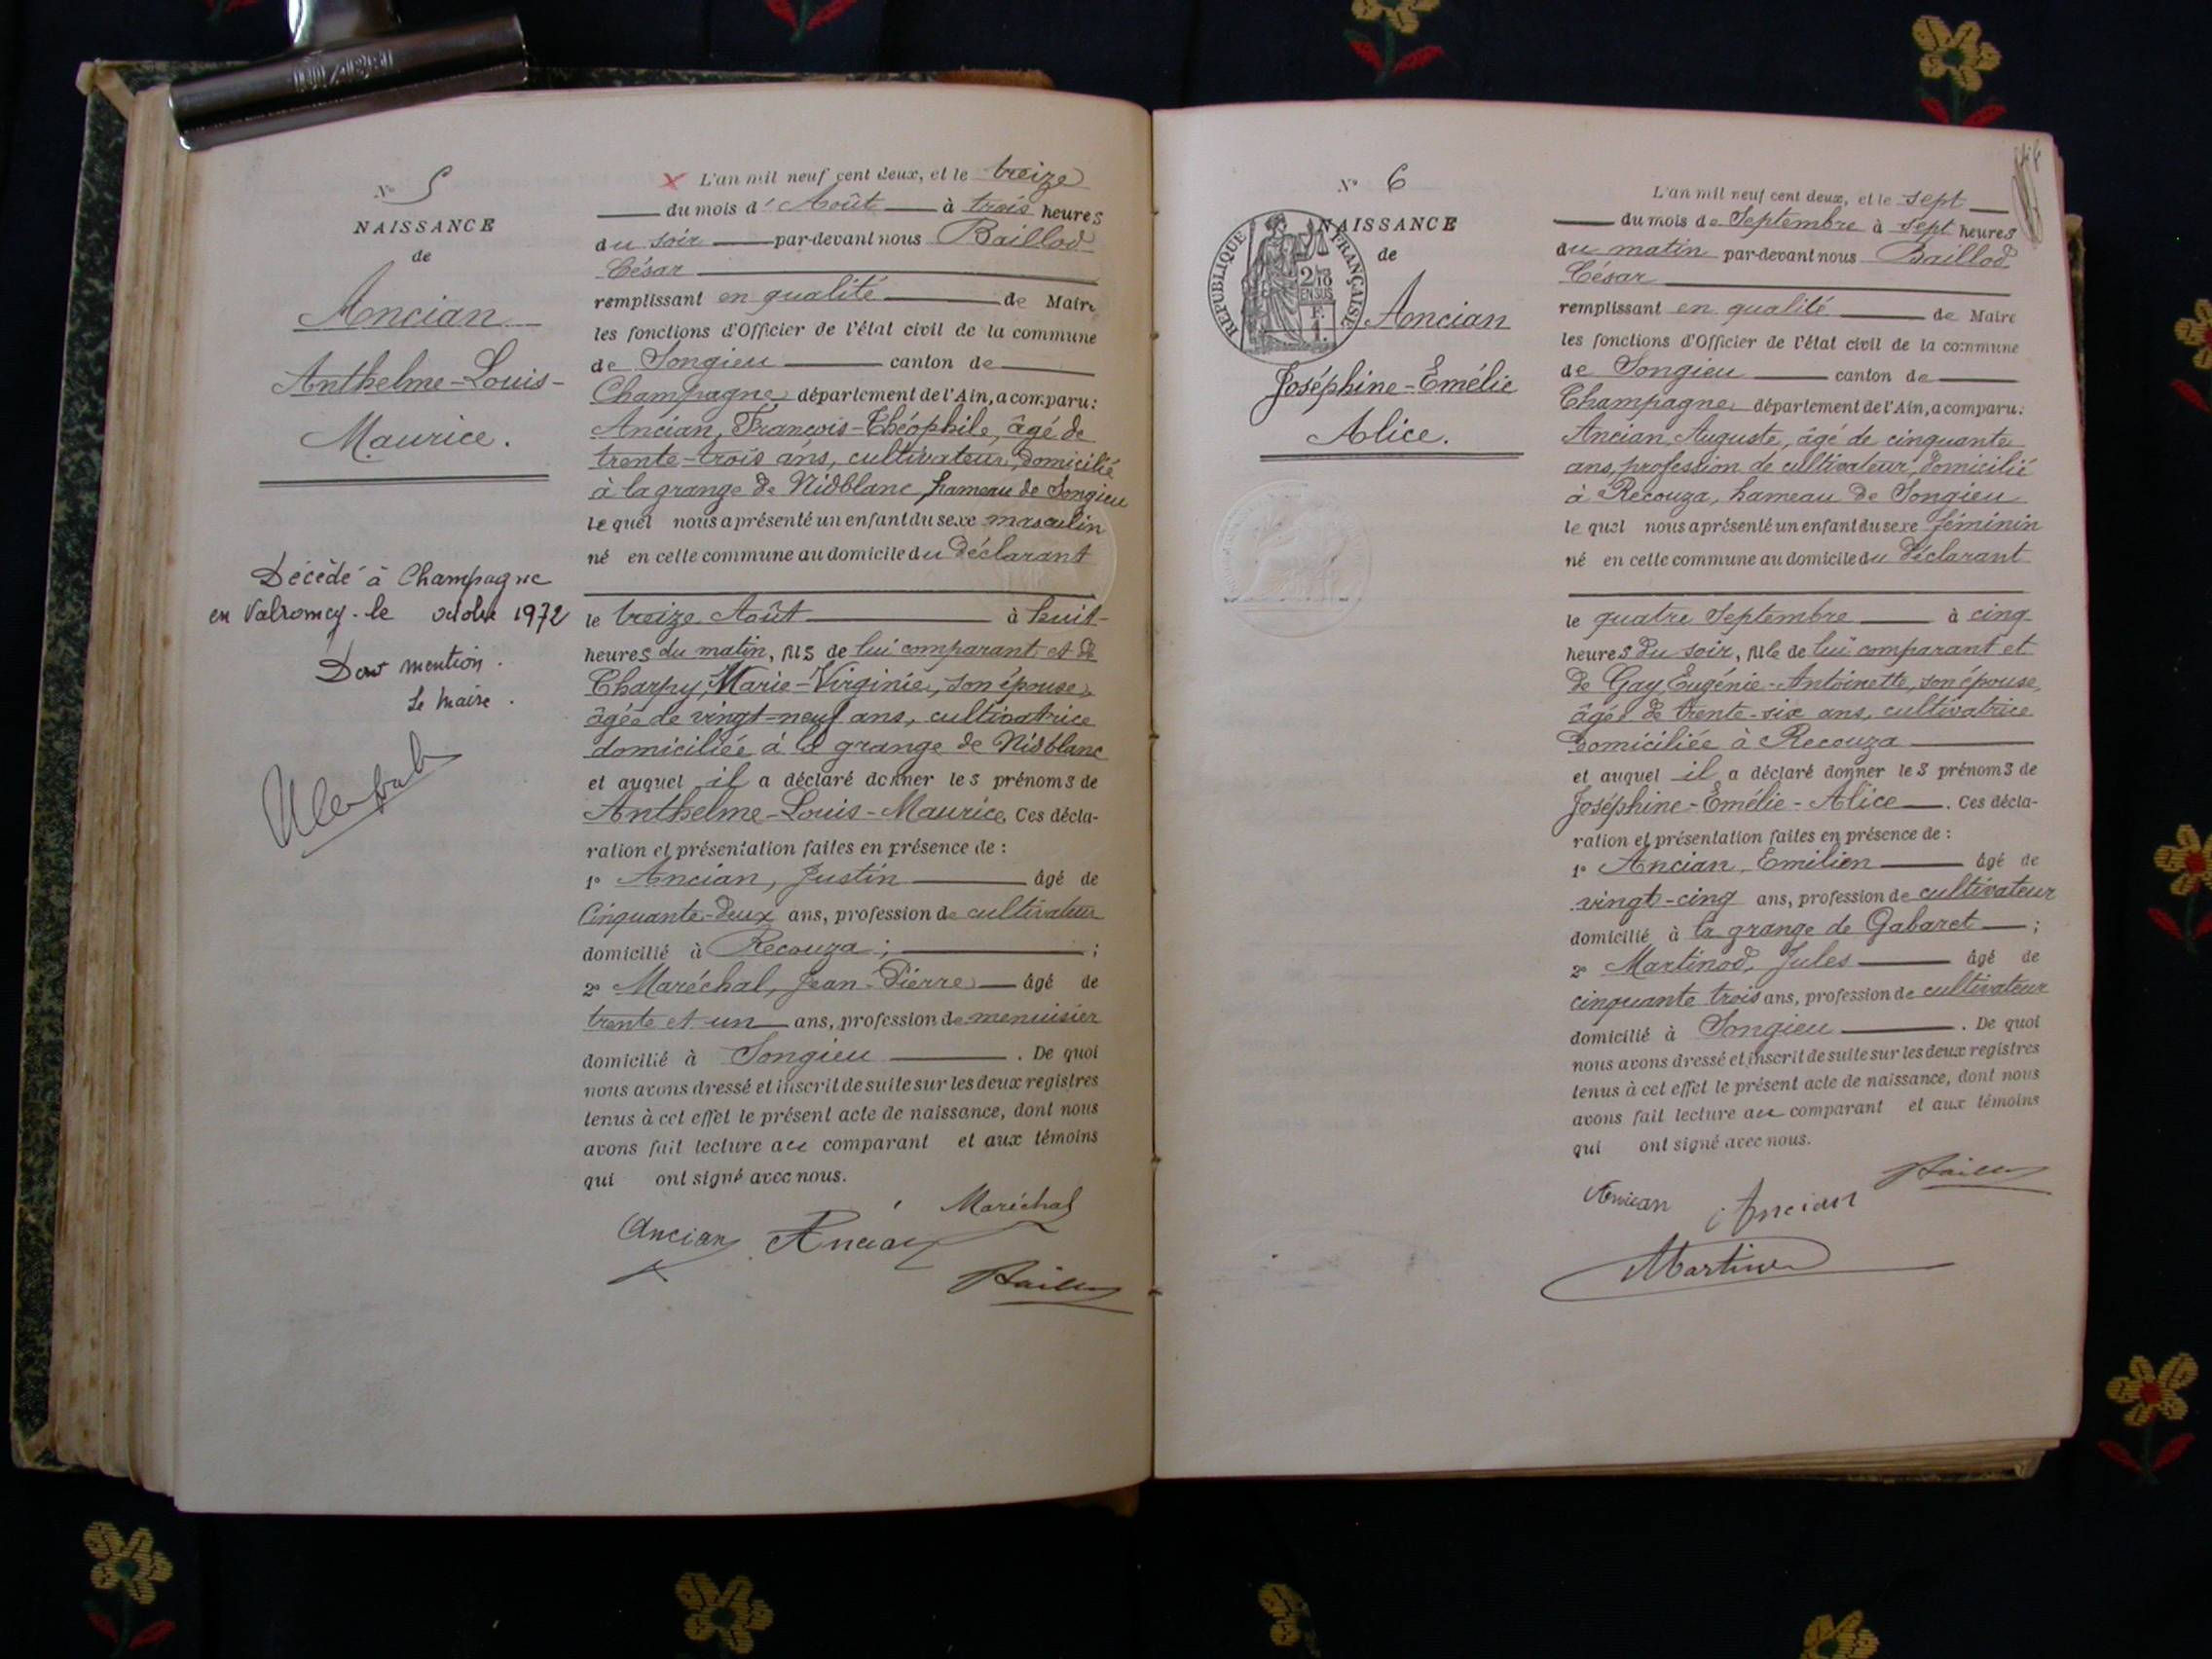 N° 5
NAISSANCE
de
Ancian
Anthelme-Louis-
Maurice.
Décédé à Champagne
en Valromey. le octobre 1972
Dont mention.
Le maire.
X L'an mil neuf cent deux, et le treize
du mois d'Août à trois heures
du soir par-devant nous Baillod
César
remplissant en qualité de Maire
les fonctions d'Officier de l'état civil de la commune
de Songieu canton de
Champagne département de l'Ain, a comparu:
Ancian, François-Théophile, âgé de
trente-trois ans, cultivateur, domicilié
à la grange de Nidblanc, hameau de Songieu
lequel nous a présenté un enfant du sexe masculin
né en cette commune au domicile du déclarant
le treize Août à huit-
heures du matin, fils de lui comparant et de
Charpy, Marie-Virginie, son épouse,
âgée de vingt-neuf ans, cultivatrice
domiciliée à la grange de Nidblanc
et auquel il a déclaré donner les prénoms de
Anthelme-Louis-Maurice. Ces décla-
ration et présentation faites en présence de :
1° Ancian, Justin âgé de
Cinquante-deux ans, profession de cultivateur
domicilié à Recouza ; ;
2° Maréchal, Jean-Pierre âgé de
trente et un ans, profession de menuisier
domicilié à Songieu . De quoi
nous avons dressé et inscrit de suite sur les deux registres
tenus à cet effet le présent acte de naissance, dont nous
avons fait lecture au comparant et aux témoins
qui ont signé avec nous.
Maréchal
Ancian Ancian
N° 6
NAISSANCE
de
RÉPUBLIQUE FRANÇAISE
2/10
EN SUS
F.
1.
Ancian
Joséphine-Emélie
Alice.
L'an mil neuf cent deux, et le sept
du mois de Septembre à sept heures
du matin par-devant nous Baillod
César
remplissant en qualité de Maire
les fonctions d'Officier de l'état civil de la commune
de Songieu canton de
Champagne département de l'Ain, a comparu:
Ancian, Auguste, âgé de cinquante
ans, profession de cultivateur, domicilié
à Recouza, hameau de Songieu
lequel nous a présenté un enfant du sexe féminin
né en cette commune au domicile du déclarant
le quatre Septembre à cinq
heures du soir, fille de lui comparant et
de Gay Eugénie-Antoinette, son épouse,
âgée de trente-six ans, cultivatrice
domiciliée à Recouza
et auquel il a déclaré donner les prénoms de
Joséphine-Emélie-Alice. Ces décla-
ration et présentation faites en présence de :
1° Ancian, Emilien âgé de
vingt-cinq ans, profession de cultivateur
domicilié à la grange de Gabaret ;
2° Martinod, Jules âgé de
cinquante trois ans, profession de cultivateur
domicilié à Songieu . De quoi
nous avons dressé et inscrit de suite sur les deux registres
tenus à cet effet le présent acte de naissance, dont nous
avons fait lecture au comparant et aux témoins
qui ont signé avec nous.
Ancian Ancian